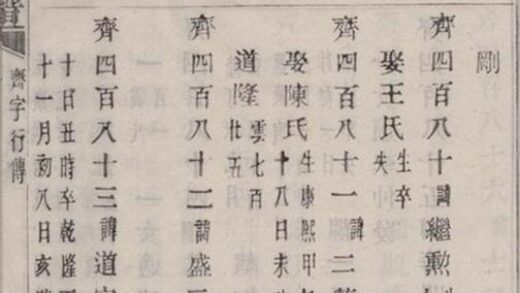 剛
齊四百八十諱繼勲
娶王氏生卒失
齊四百八十一諱三
娶陳氏生康熙甲
十八日未
道隆雲七百廿五
齊四百八十二諱盛
齊四百八十三諱道
十日丑時卒乾隆
十一月初八日亥
齊字行傳